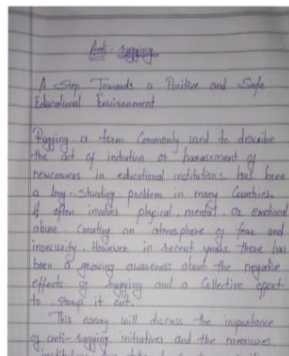 Anti-ragging
A Step Towards a Positive and Safe
Educational Environment
Ragging, a term commonly used to describe
the act of initiation or harassment of
newcomers in educational institutions has been
a long-standing problem in many Countries.
It often involves physical, mental, or emotional
abuse, creating an atmosphere of fear and
insecurity. However, in recent years there has
been a growing awareness about the negative
effects of ragging and a Collective effort
to it out.
This essay will discuss the importance
of anti-ragging initiatives and the measures